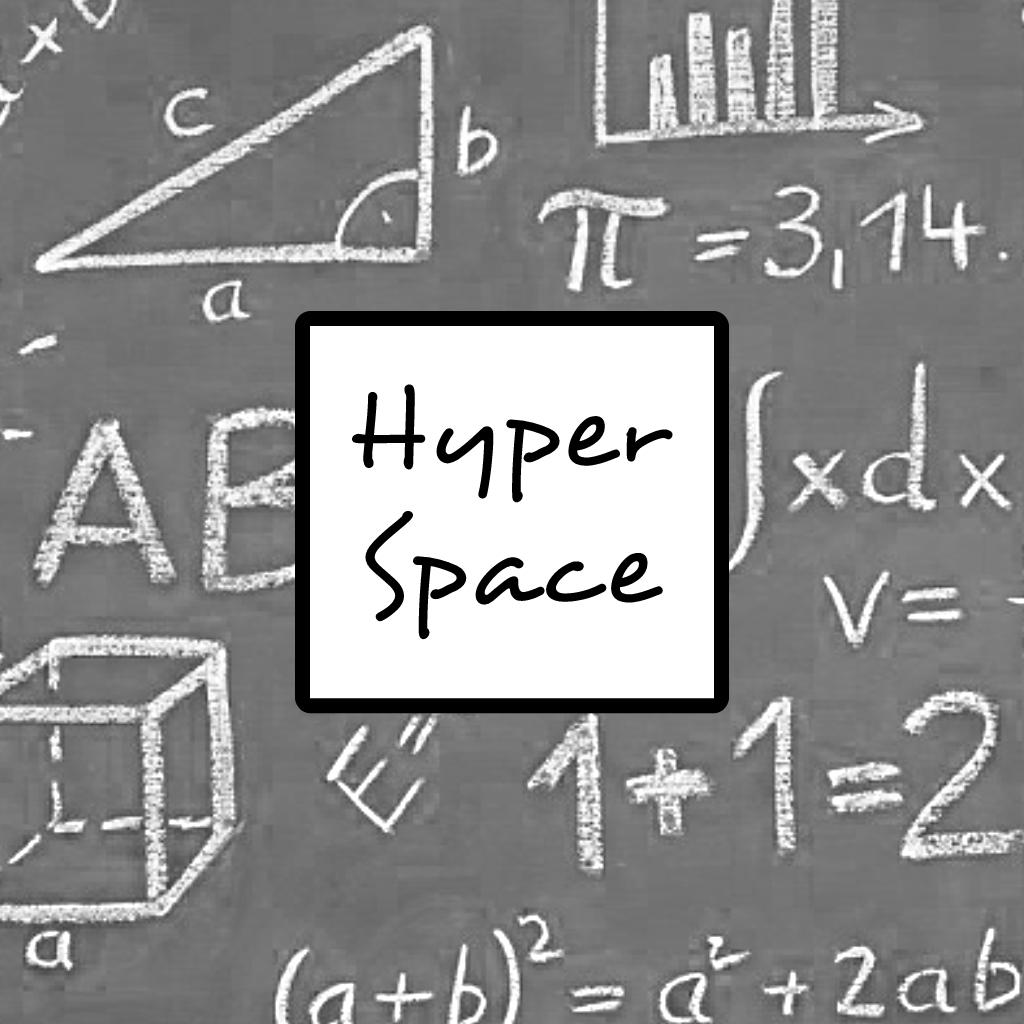 c
b
a
π = 3,14.
Hyper
Space
AB
∫xdx
v = -
E=
1+1=2
a
(a+b)² = a² + 2ab